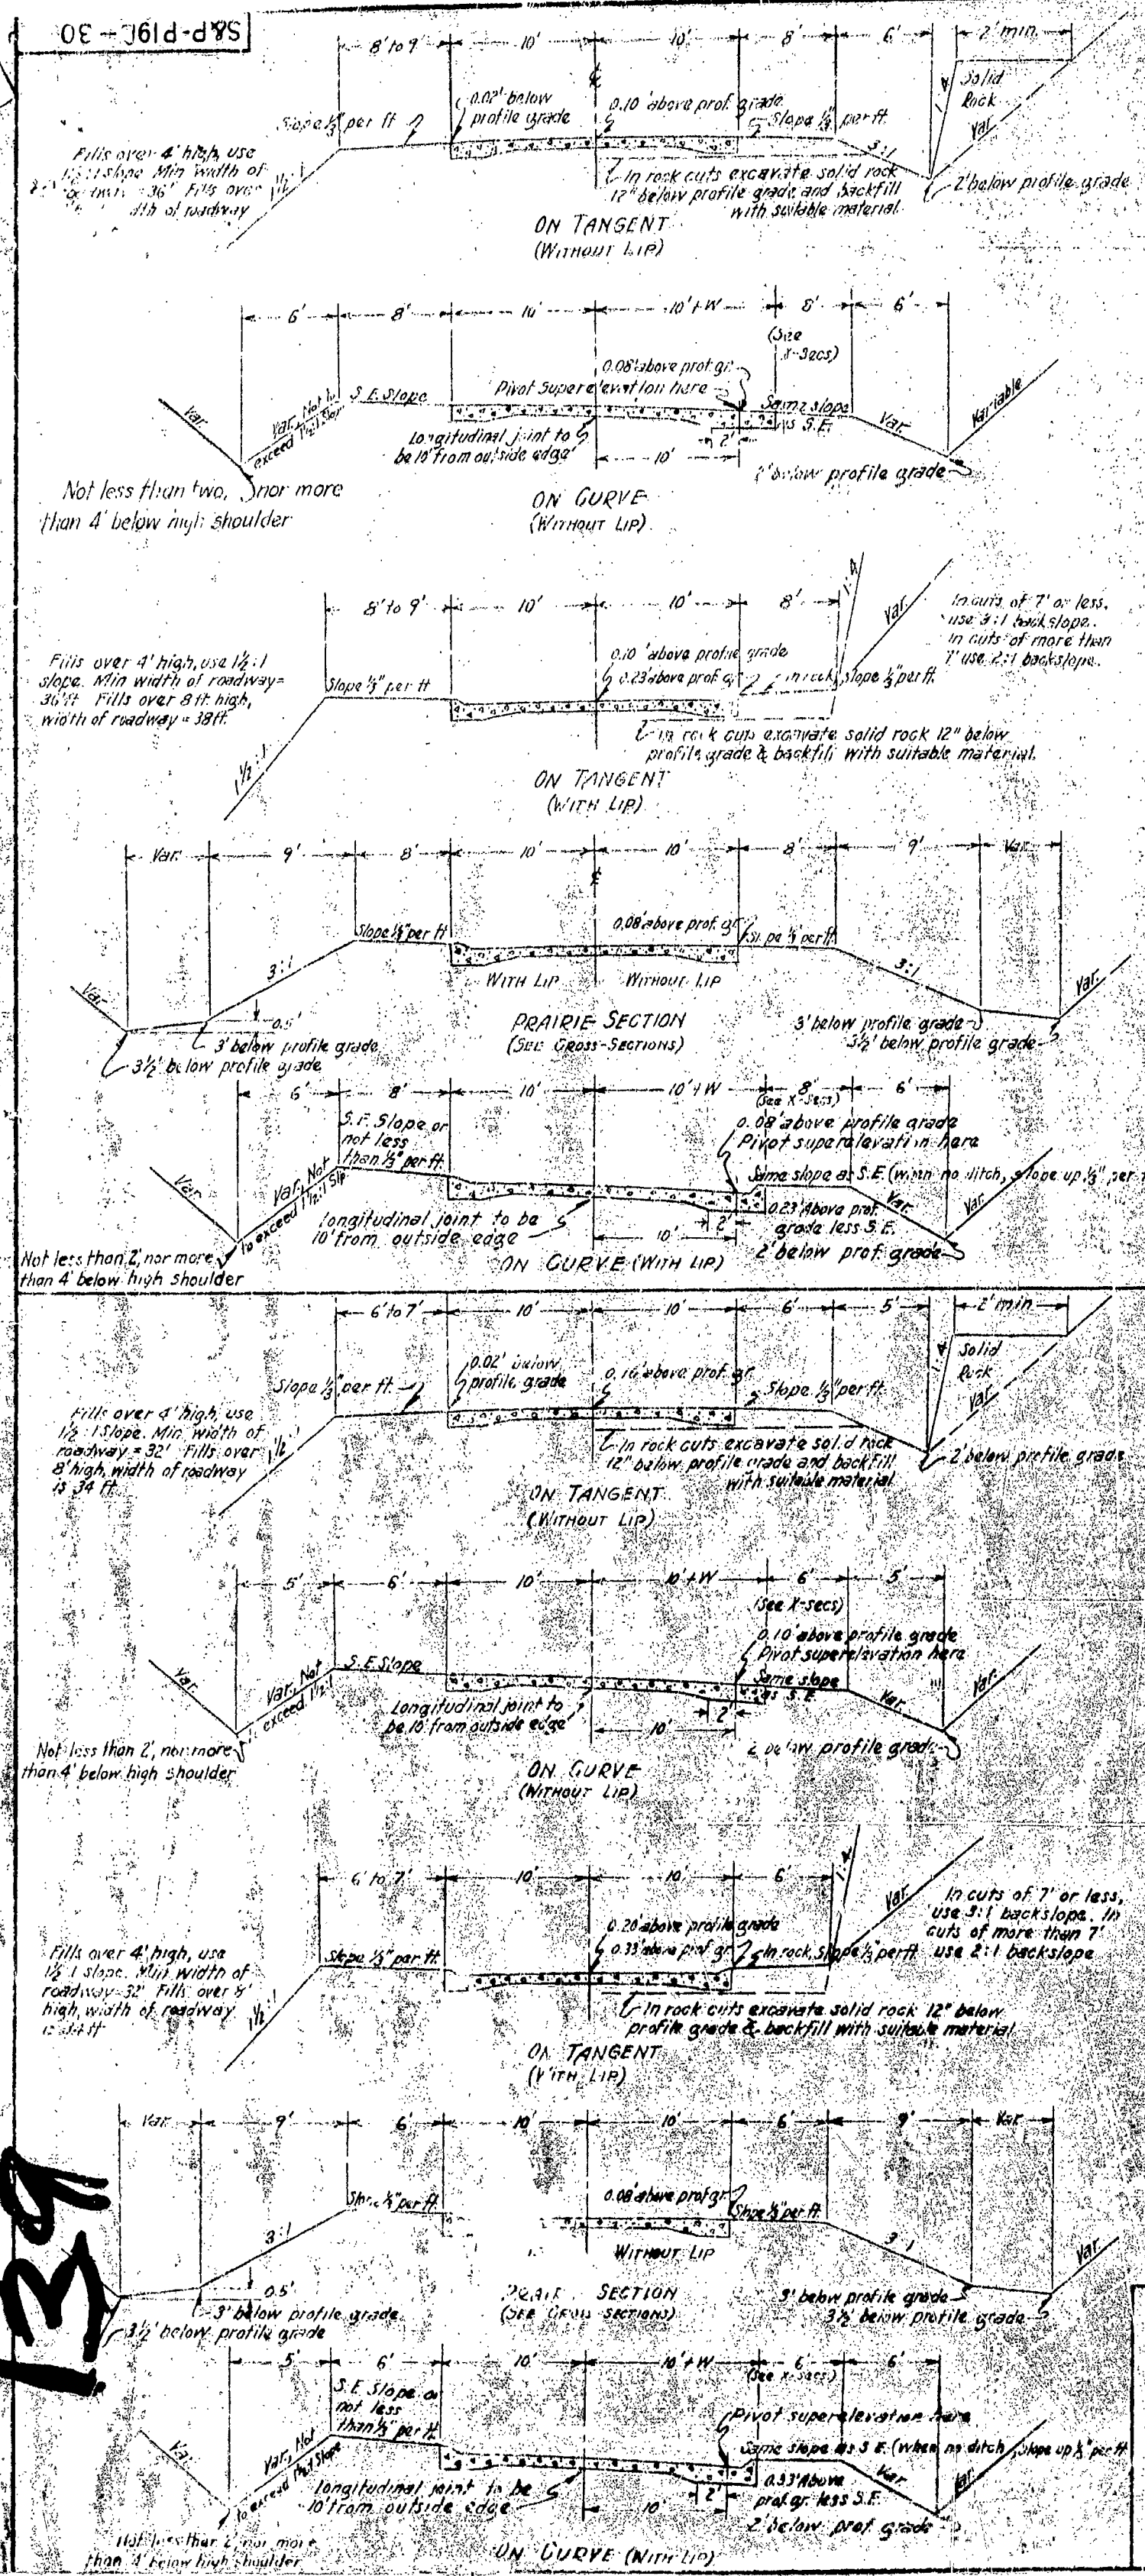 S&P-P19C-30
8' to 9' 10' 10' 8' 6' 2' min.
Solid
Rock
Var.
0.02' below
profile grade
0.10' above prof. grade
Slope ⅓" per ft
Slope ⅓" per ft.
3:1
Fills over 4' high, use
slope Min width of
36' Fills over
of roadway
In rock cuts excavate solid rock
12" below profile grade and backfill
with suitable material.
2' below profile grade
ON TANGENT
(WITHOUT LIP)
6' 8' 10' 10'+W 8' 6'
(See
X-Secs)
0.08' above prof. gr.
Pivot Superelevation here
S.E. Slope
Same slope
as S.E.
Var.
Var. Not to
exceed 1½:1 Slope
Var.
Variable
Longitudinal joint to
be 10' from outside edge
2'
10'
2' below profile grade
Not less than two, nor more
than 4' below high shoulder
ON CURVE
(WITHOUT LIP)
8' to 9' 10' 10' 8'
Var.
In cuts of 7' or less,
use 3:1 backslope.
In cuts of more than
7' use 2:1 backslope.
Fills over 4' high, use 1½:1
slope. Min width of roadway=
36 ft Fills over 8 ft. high,
width of roadway = 38 ft.
0.10' above profile grade
0.23' above prof. gr.
In rock, slope ⅓" per ft.
Slope ⅓" per ft
1½:1
In rock cuts excavate solid rock 12" below
profile grade & backfill with suitable material.
ON TANGENT
(WITH LIP)
Var. 9' 8' 10' 10' 8' 9' Var.
Slope ⅓" per ft
0.08' above prof. gr.
Slope ⅓" per ft
3:1
3:1
WITH LIP WITHOUT LIP
Var.
Var.
0.5'
3' below profile grade
3½' below profile grade
PRAIRIE SECTION
(SEE CROSS-SECTIONS)
3' below profile grade
3½' below profile grade
6' 8' 10' 10'+W 8' 6'
(See X-Secs)
S.E. Slope or
not less
than ⅓" per ft.
0.08' above profile grade
Pivot superelevation here
Same slope as S.E. (when no ditch, slope up ⅓" per
Var.
Var. Not
to exceed 1½:1 Slp
Var.
Var.
Longitudinal joint to be
10' from outside edge
2'
10'
0.23' Above prof.
grade less S.E.
2' below prof. grade
Not less than 2', nor more
than 4' below high shoulder
ON CURVE (WITH LIP)
6' to 7' 10' 10' 6' 5' 2' min
Solid
Rock
Var.
0.02' below
profile grade
above prof. gr.
Slope ⅓" per ft.
Slope ⅓" per ft.
Fills over 4' high, use
1½:1 Slope. Min. width of
roadway = 32' Fills over
8' high, width of roadway
is 34 ft.
In rock cuts excavate solid rock
12" below profile grade and backfill
with suitable material
2' below profile grade
ON TANGENT
(WITHOUT LIP)
5' 6' 10' 10'+W 6' 5'
(See X-secs)
0.10 above profile grade
Pivot superelevation here
S.E. Slope
Same slope
as S.E.
Var.
Var. Not
exceed 1½:1
Var.
Var.
Longitudinal joint to
be 10' from outside edge
2'
10'
2' below profile grade
Not less than 2', nor more
than 4' below high shoulder
ON CURVE
(WITHOUT LIP)
6' to 7' 10' 10' 6'
Var.
In cuts of 7' or less,
use 3:1 backslope. In
cuts of more than 7'
use 2:1 backslope
0.20' above profile grade
0.33' above prof. gr.
In rock, slope ⅓" per ft
Slope ⅓" per ft
Fills over 4' high, use
1½:1 slope. Min width of
roadway=32' Fills over 8'
high, width of roadway
is 34 ft
1½:1
In rock cuts excavate solid rock 12" below
profile grade & backfill with suitable material
ON TANGENT
(WITH LIP)
Var. 9' 6' 10' 10' 6' 9' Var.
Slope ⅓" per ft.
0.08' above prof. gr.
Slope ⅓" per ft.
3:1
3:1
WITHOUT LIP
Var.
0.5'
3' below profile grade
3½' below profile grade
SECTION
(SEE CROSS SECTIONS)
3' below profile grade
3½' below profile grade
139
5' 6' 10' 10'+W 6' 6'
(See X-secs)
S.E. Slope or
not less
than ⅓" per ft.
Pivot superelevation here
Same slope as S.E. (when no ditch, slope up ⅓" per ft
Var.
Var. Not
to exceed 1½:1 Slope
Var.
Var.
Longitudinal joint to be
10' from outside edge
2'
10'
0.33' Above
prof. gr. less S.E.
2' below prof. grade
Not less than 2' nor more
than 4' below high shoulder
ON CURVE (WITH LIP)